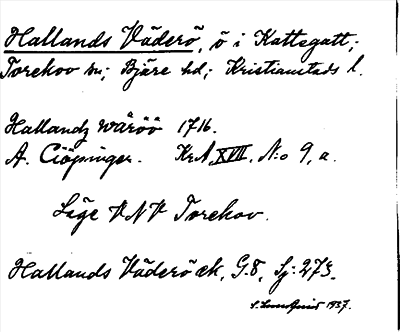 Hallands Väderö, ö i Kattegatt;
Torekov sn; Bjäre hd; Kristianstads l.
Hallandz wäröö 1716.
A. Ciöpinger. KrA XVIII, N:o 9, a.
Läge VNV Torekov.
Hallands Väderö ek, G.8, Sj: 273.
1937.